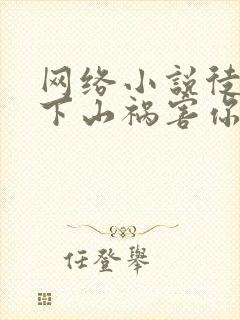 网络小説徒
下山祸害你
任登舉